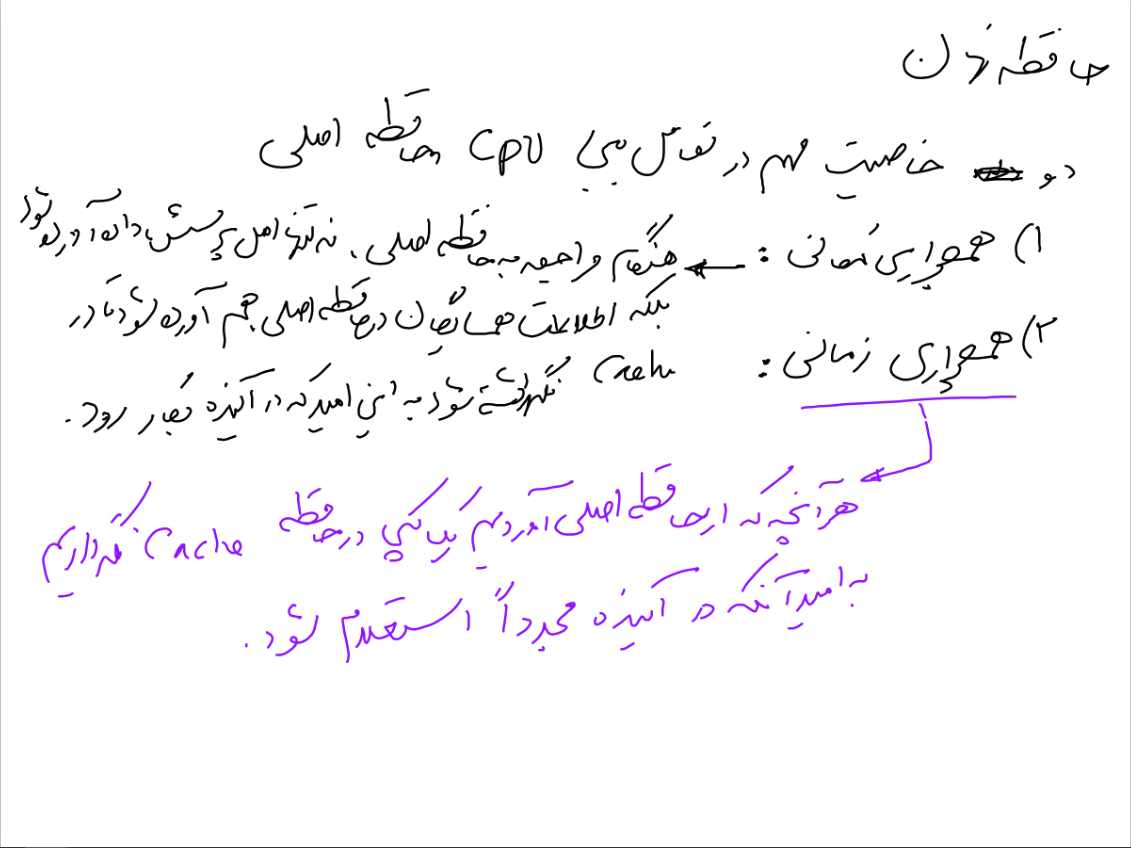 حافظه نهان
دو خاصیت مهم در تماس بین CPU و حافظه اصلی
۱) همجواری مکانی : هنگام مراجعه به حافظه اصلی، نه تنها اصل پرسش، داده آورده شود
بلکه اطلاعات همسایگان در حافظه اصلی هم آورده شود تا در
Cache نگهداشته شود به این امید که در آینده بکار رود.
۲) همجواری زمانی :
هر آنچه که از حافظه اصلی آوردیم یک کپی در حافظه Cache نگه داریم
به امید آنکه در آینده مجدداً استفاده شود.